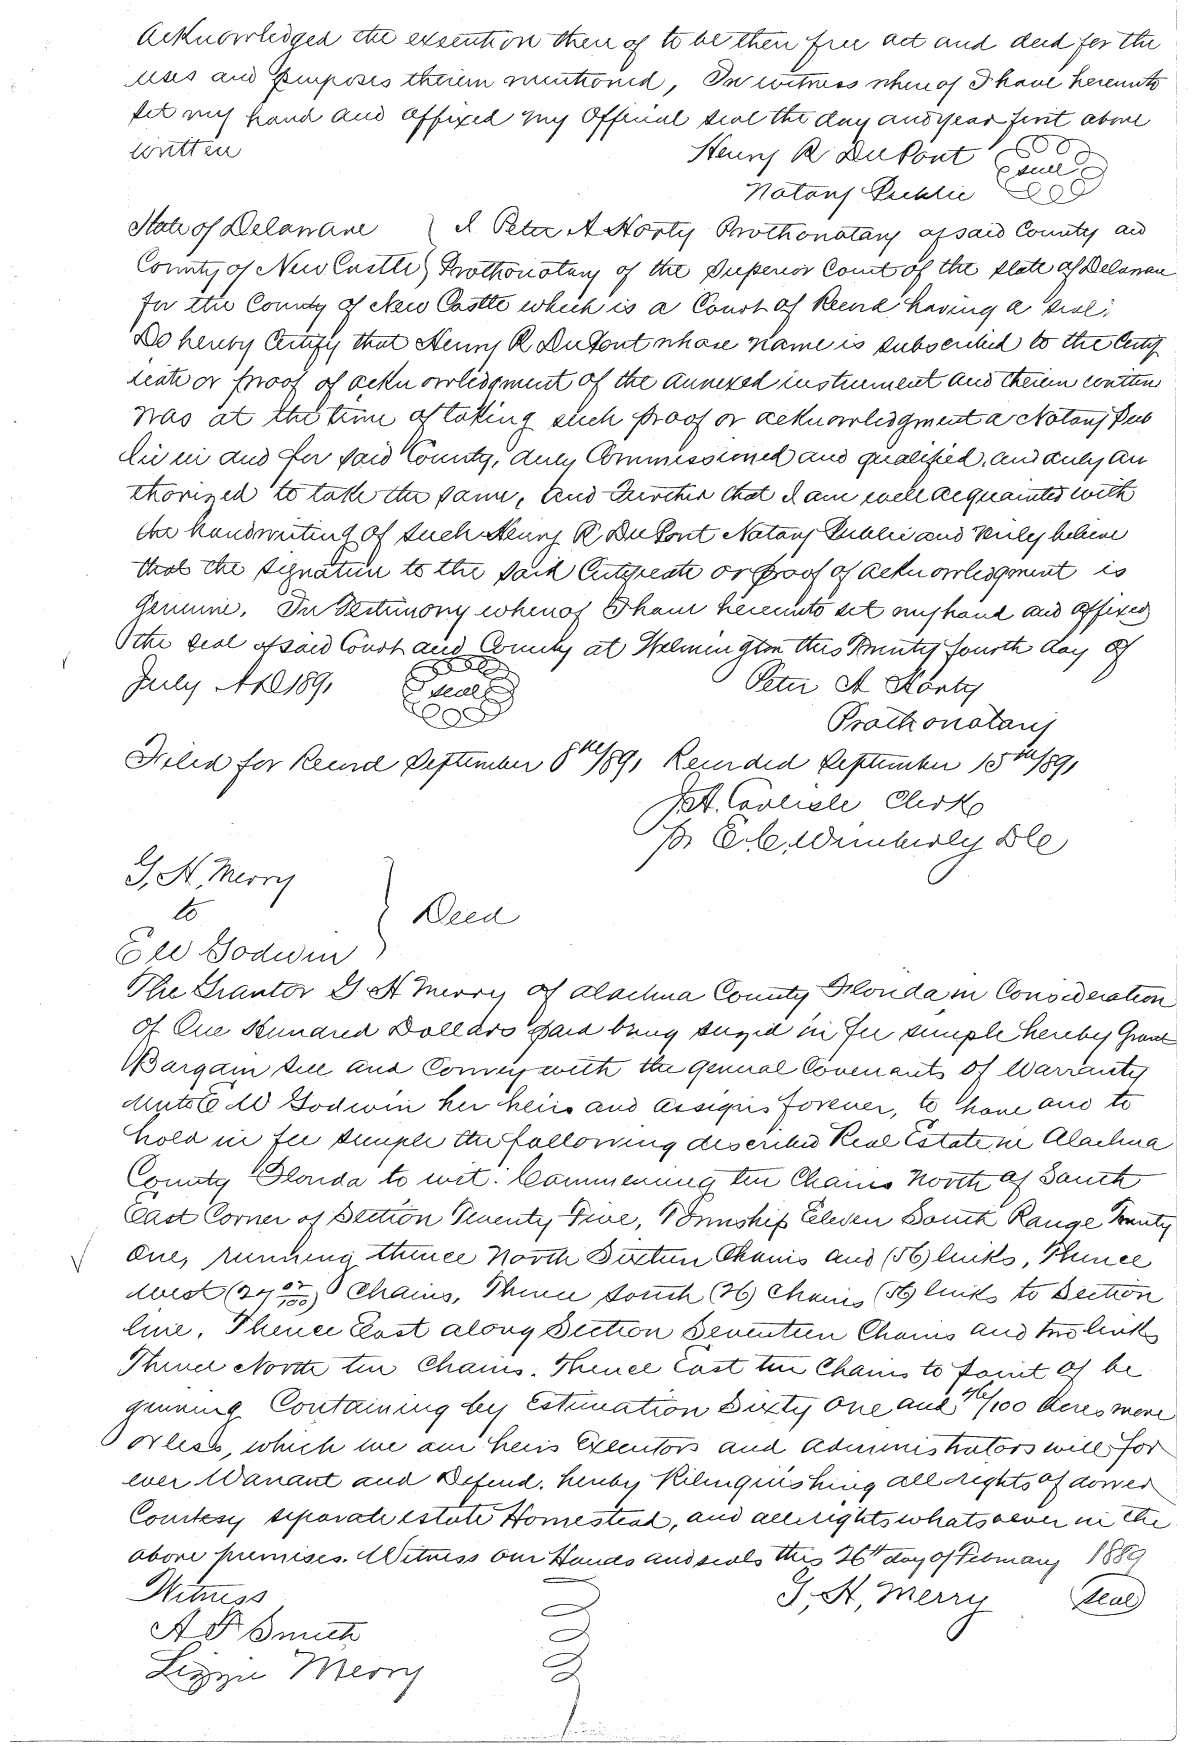 acknowledged the execution there of to be their free act and deed for the
uses and purposes therein mentioned, In witness where of I have hereunto
set my hand and affixed my Official seal the day and year first above
written Henry R DuPont seal
Notary Public
State of Delaware } I Peter A Horty Prothonotary of said County and
County of New Castle } Prothonotary of the Superior Court of the State of Delaware
for the County of New Castle which is a Court of Record having a seal;
Do hereby Certify that Henry R DuPont whose name is subscribed to the Certif
icate or proof of acknowledgment of the annexed instrument and therein written
was at the time of taking such proof or acknowledgment a Notary Pub
lic in and for said County, duly Commissioned and qualified, and duly au
thorized to take the same, and Further that I am well acquainted with
the handwriting of such Henry R DuPont Notary Public and truly believe
that the signature to the said Certificate or proof of acknowledgment is
Genuine. In Testimony whereof I have hereunto set my hand and affixed
the seal of said Court and County at Wilmington this Twenty fourth day of
July A.D. 1891 seal Peter A Horty
Prothonotary
Filed for Record September 8th/891 Recorded September 15th/891
J.A. Carlisle Clerk
pr E.C. Wimberly DC
G, H, Merry
to } Deed
E W Godwin
The Grantor G H Merry of Alachua County Florida in Consideration
of One Hundred Dollars paid being seized in fee simple hereby Grant
Bargain sell and Convey with the general Covenants of Warranty
unto E W Godwin her heirs and assigns forever, to have and to
hold in fee simple the following described Real Estate in Alachua
County Florida to wit: Commencing ten Chains North of South
East Corner of Section Twenty Five, Township Eleven South Range Twenty
One, running thence North Sixteen Chains and (56) links, Thence
West (27 02/100) Chains, Thence South (26) Chains (56) links to Section
line. Thence East along Section Seventeen Chains and two links
Thence North ten Chains. Thence East ten Chains to point of be
ginning Containing by Estimation Sixty One and 76/100 Acres more
or less, which we our heirs Executors and administrators will for
ever Warrant and Defend. hereby Relinquishing all rights of dower
Courtesy separate estate Homestead, and all rights whatsoever in the
above premises. Witness our Hands and seals this 26th day of February 1889
Witness G, H, Merry seal
A F Smith
Lizzie Merry